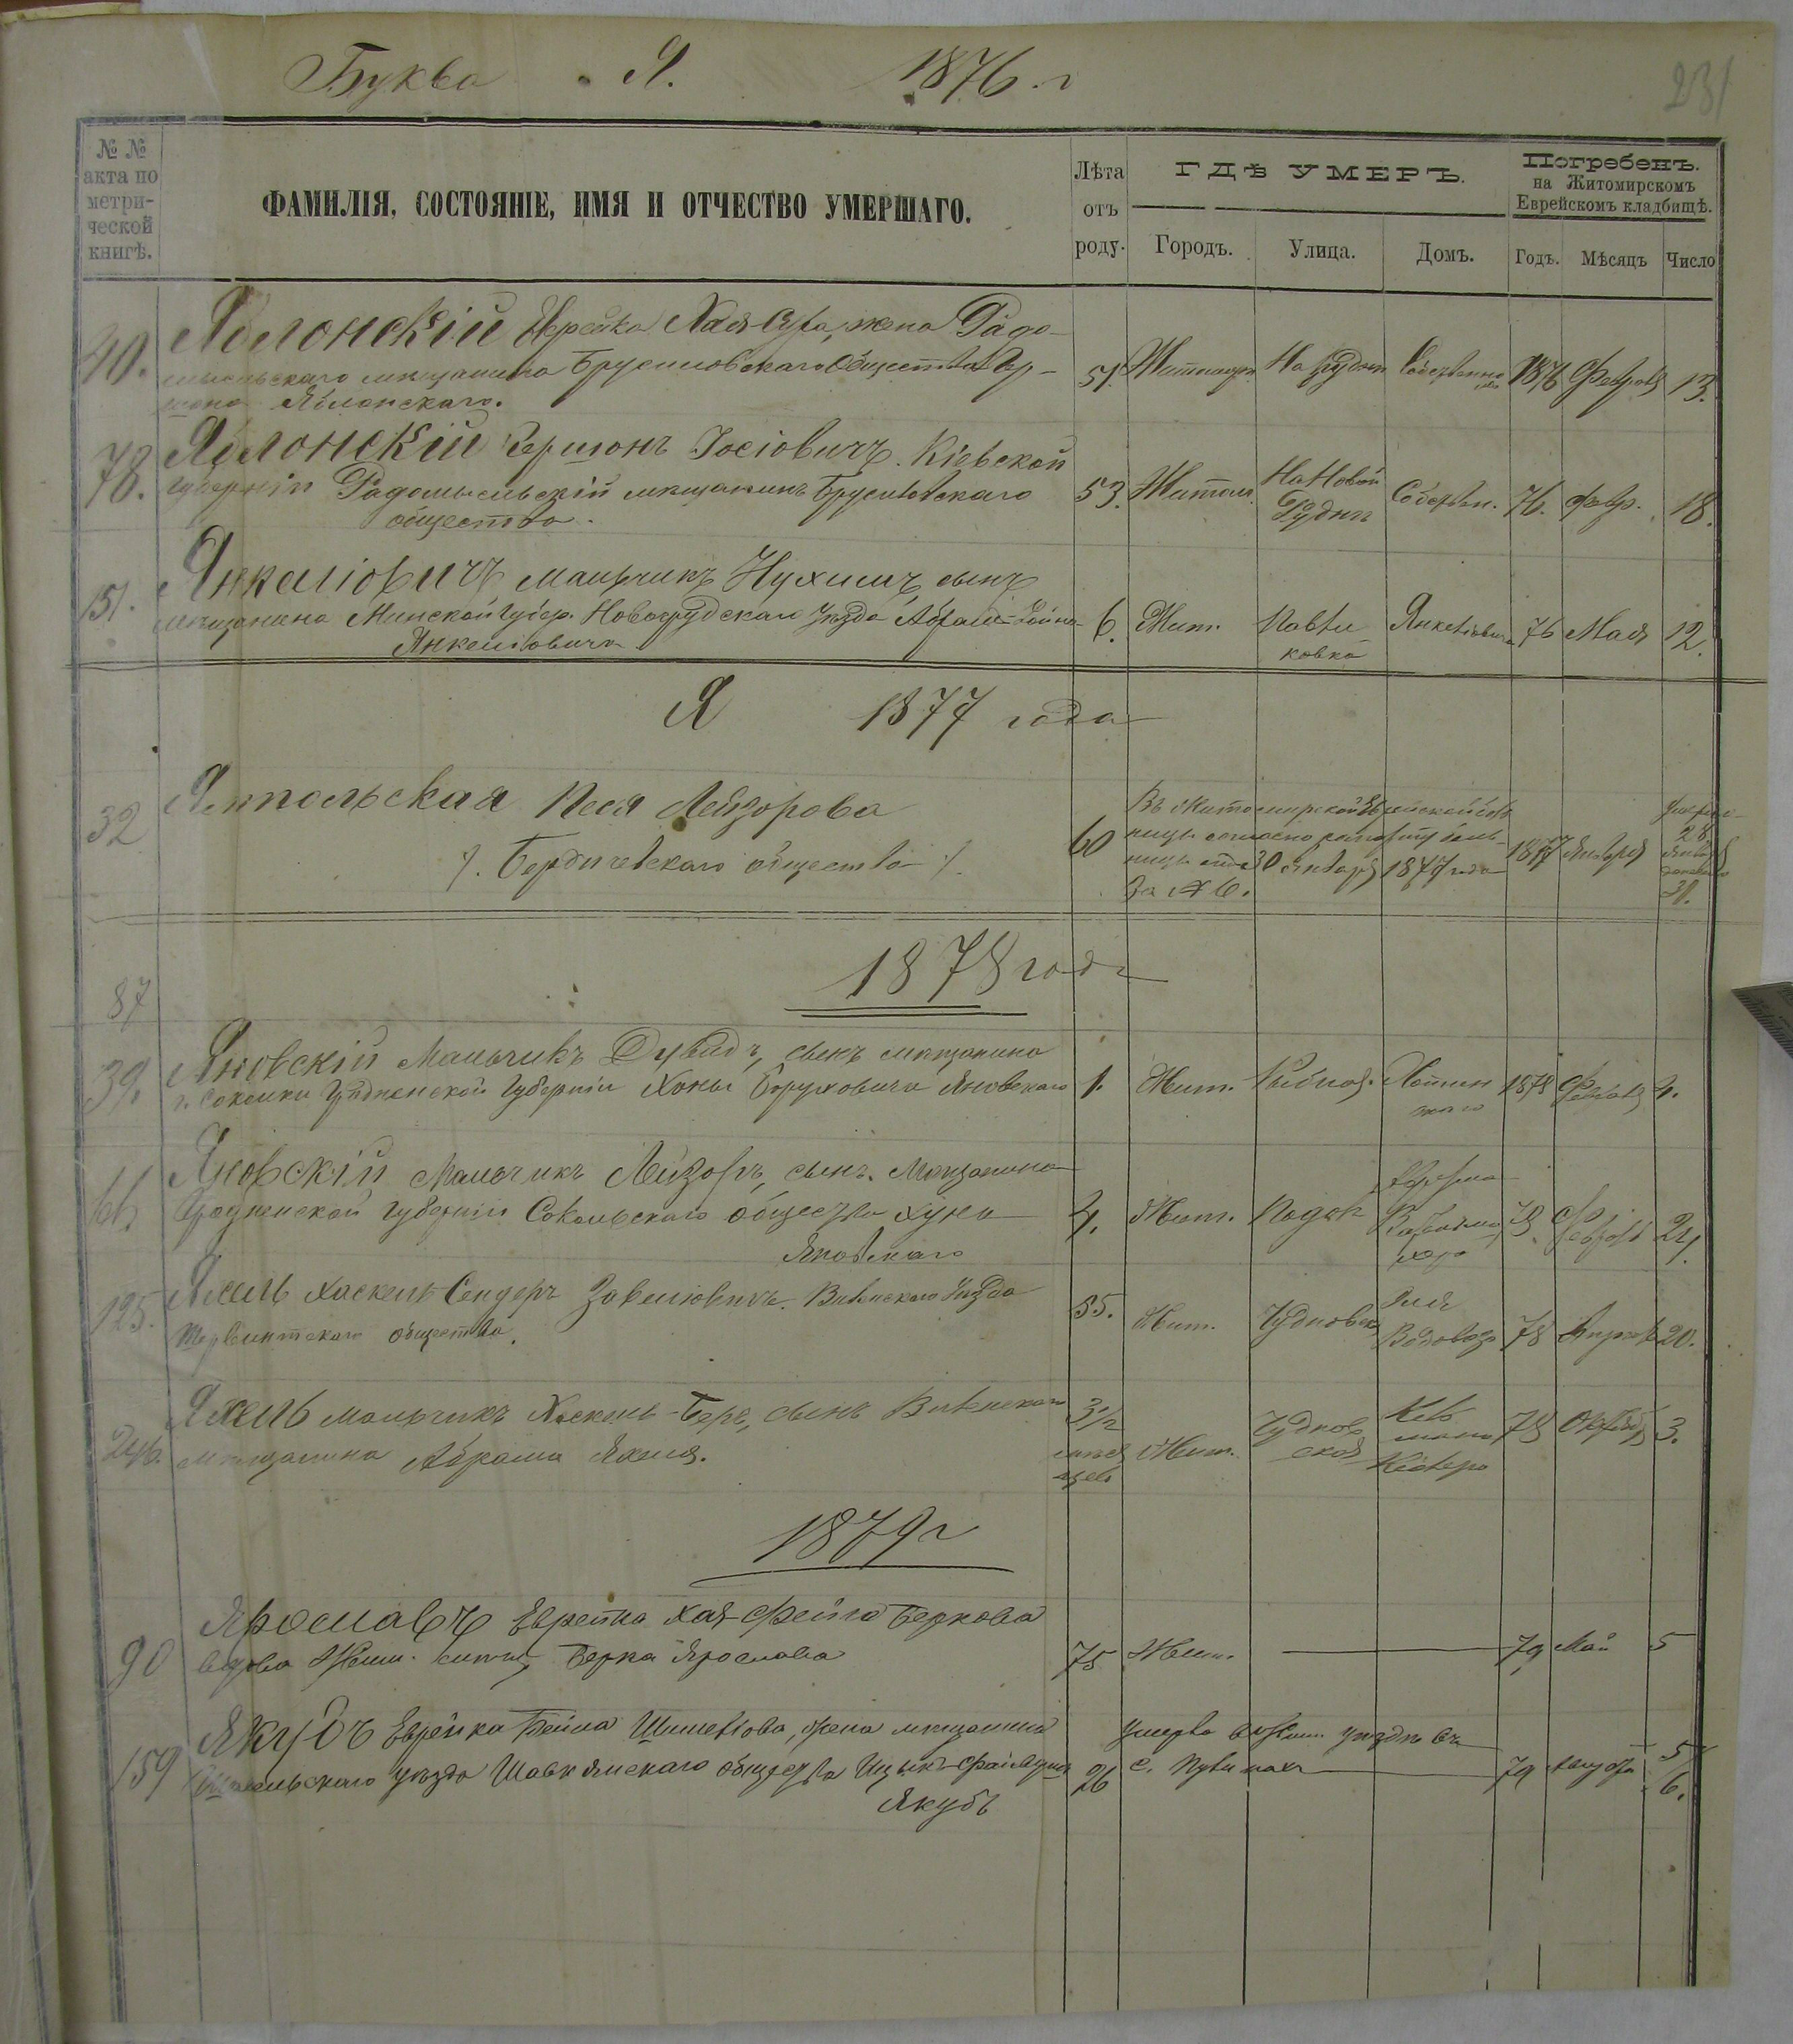 Буква Я. 1876 г
231
№ № акта по метрической книгѣ.
ФАМИЛІЯ, СОСТОЯНІЕ, ИМЯ И ОТЧЕСТВО УМЕРШАГО.
Лѣта отъ роду.
ГДѢ УМЕРЪ.
Городъ. Улица. Домъ.
Погребенъ.
на Житомирскомъ
Еврейскомъ кладбищѣ.
Годъ. Мѣсяцъ Число
40. Яблонскій Еврейка Хая-Сура, жена Радо-
мысльскаго мещанина Брусиловскаго Общества Гер-
шона Яблонскаго. 51. Житомир На Рудни Собственно 1876 Февраля 13.
78. Яблонскій Гершонъ Іосіовичъ. Кіевской
губерніи Радомысльскій мещанинъ Брусиловскаго
общества. 53. Житом. На Новой Рудни Собствен. 76. февр. 18.
151. Янкеліовичъ мальчикъ Нухимъ сынъ
мещанина Минской губер. Новогрудскаго уезда Абрам-
Янкеліовича 6. Жит. Павли-
ковка Янкеліовича 76 Мая 12.
Я 1877 года
32 Ямпольская Песя Лейзорова
/. Бердичевскаго общества /. 60
Въ Житомирской Еврейской боль-
ницы согласно рапорту боль-
ницы отъ 30 января 1877 года
За № 6. 1877 Января 28
31.
1878 года
87
39. Яновскій Мальчикъ Дувидъ, сынъ мещанина
г. Соколки Гродненской Губерніи Хоны Боруховича Яновскаго 1. Жит. Рыбная. 1878 Февраля 4.
66. Яновскій Мальчикъ Лейзоръ, сынъ. Мещанина
Гродненской губерніи Сокольскаго общества Хуна
Яновскаго 4. Жит. 78. Февраля 24.
125. Яхель Хаскель-Сендеръ Завеліовичъ. Виленскаго Уезда
общества. 55. Жит. Чудновск Водовоза 78 Апреля 20.
246. Яхель мальчикъ Хаскель-Беръ, сынъ Виленскаго
мещанина Абрама Яхеля. 3½ Жит. Чуднов
ская 78 Октября 3.
1879 г
90 Ярославъ Еврейка Хая-Фейга Беркова
вдова Жит. Берка Ярослава 75 Жит. 79 Май 5
159 Якубъ Еврейка Бейла Шмелева, жена мещанина
уезда общества Ицыка-
Якубъ 26 Умерла в Жит. уезде въ
с. 79 Августа 5/6.